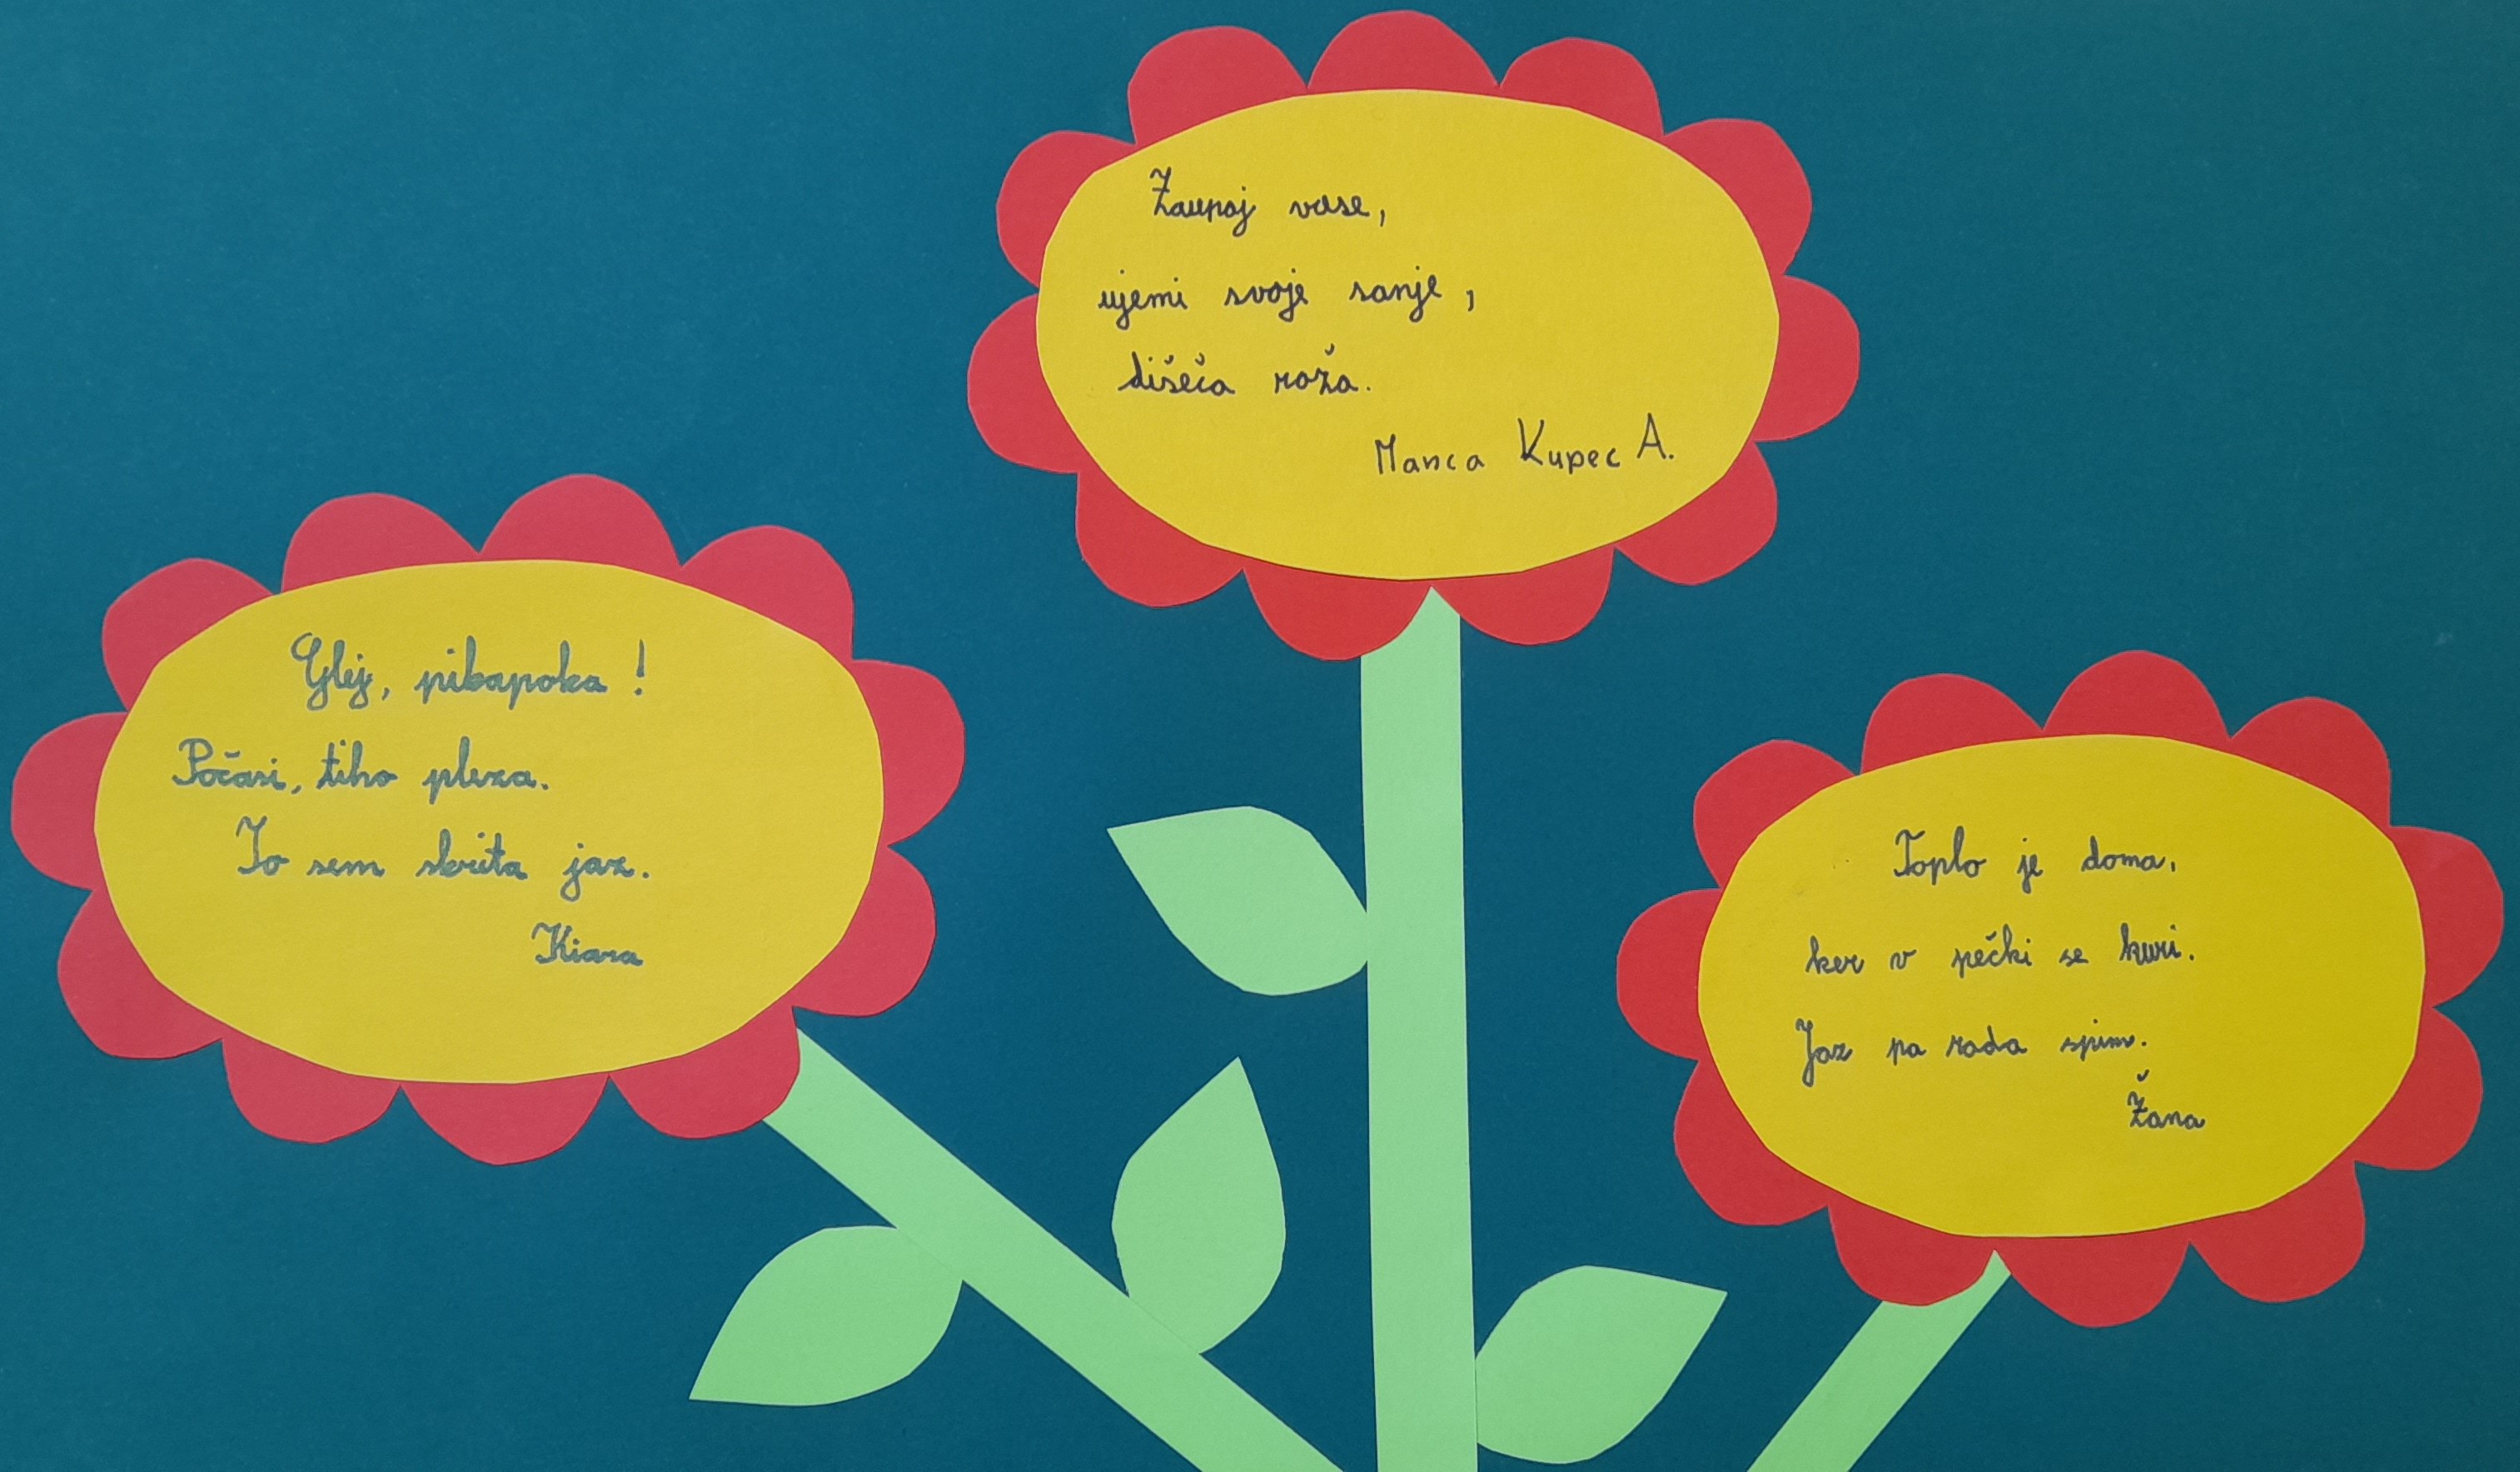 Glej, pikapoka!
Počasi, tiho pleza.
To sem skrita jaz.
Kiara
Zaupaj vase,
ujemi svoje sanje,
dišeča roža.
Manca Kupec A.
Toplo je doma,
ker v pečki se kuri.
Jaz pa rada spim.
Žana